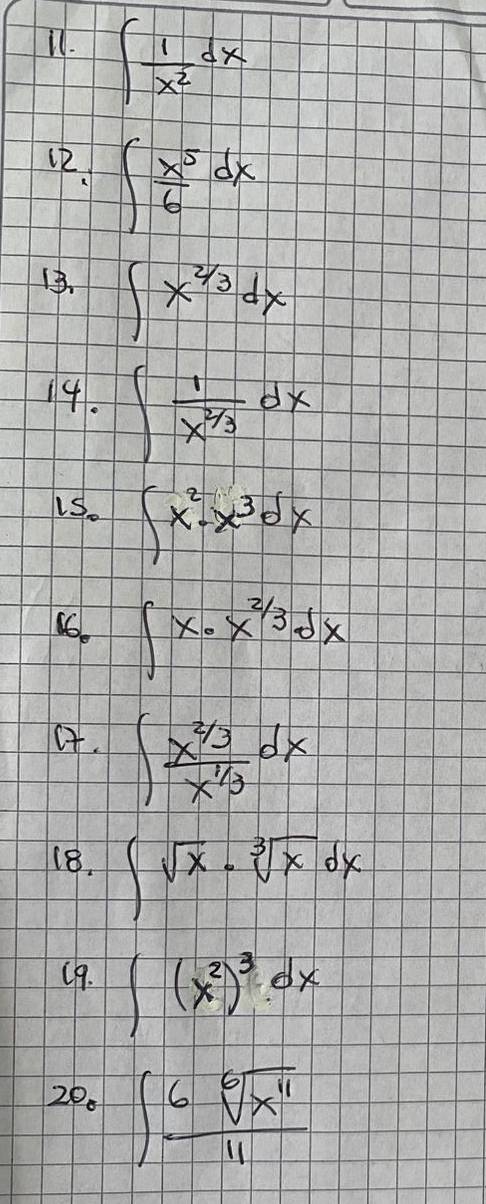 11. ∫ 1/x² dx
12. ∫ x⁵/6 dx
13. ∫ x^(2/3) dx
14. ∫ 1/x^(2/3) dx
15. ∫ x² · x³ dx
16. ∫ x · x^(2/3) dx
17. ∫ x^(2/3)/x^(1/3) dx
18. ∫ √x · ∛x dx
19. ∫ (x²)³ dx
20. ∫ 6 ⁶√(x¹¹)/11